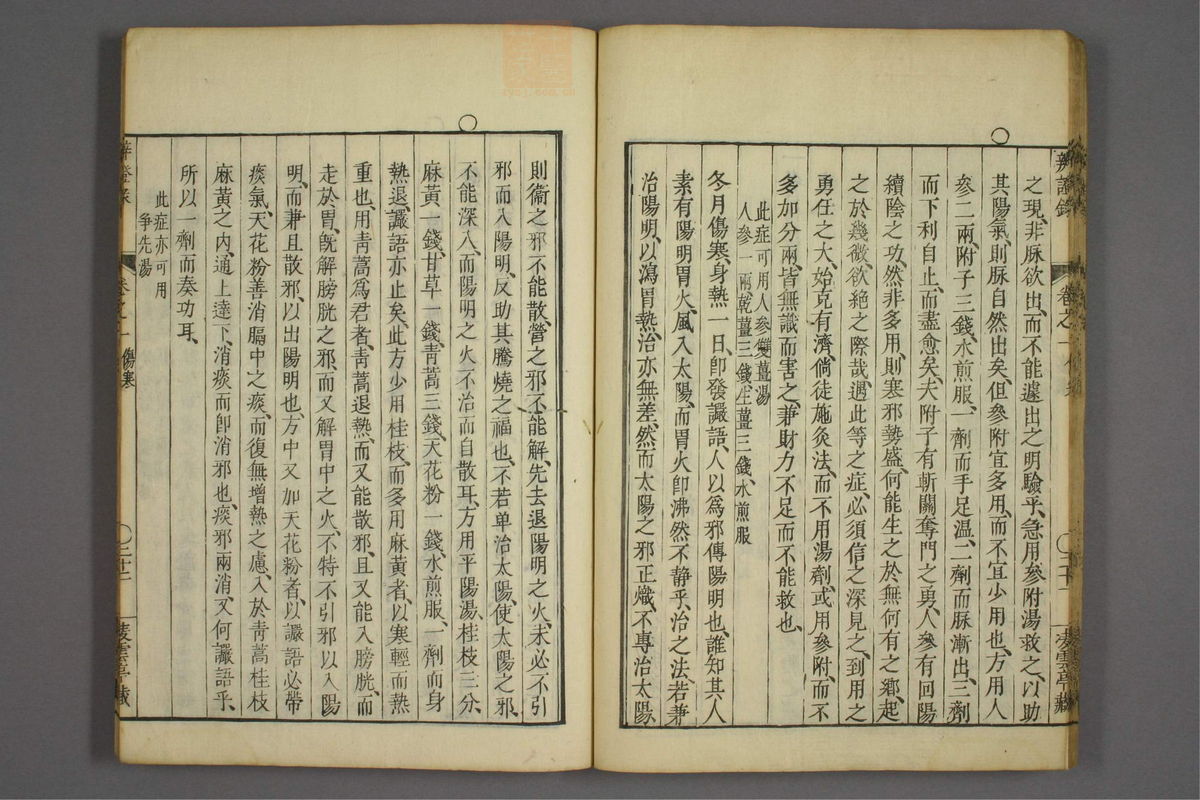 之現非脉欲出而不能遽出之明驗乎急用參附湯救之以助
其陽氣則脉自然出矣但參附宜多用而不宜少用也方用人
參二兩附子三錢水煎服一劑而手足溫二劑而脉漸出三劑
而下利自止而盡愈矣夫附子有斬關奪門之勇人參有回陽
續陰之功然非多用則寒邪勢盛何能生之於無何有之鄉起
之於幾微欲絕之際哉遇此等之症必須信之深見之到用之
勇任之大始克有濟倘徒施灸法而不用湯劑或用參附而不
多加分兩皆無識而害之兼財力不足而不能救也
此症可用人參雙薑湯
人參一兩乾薑三錢生薑三錢水煎服
冬月傷寒身熱一日卽發譫語人以爲邪傳陽明也誰知其人
素有陽明胃火風入太陽而胃火卽沸然不静乎治之法若兼
治陽明以瀉胃熱治亦無差然而太陽之邪正熾不專治太陽
則衛之邪不能散營之邪不能解先去退陽明之火未必不引
邪而入陽明反助其騰燒之禍也不若单治太陽使太陽之邪
不能深入而陽明之火不治而自散耳方用平陽湯桂枝三分
麻黃一錢甘草一錢靑蒿三錢天花粉一錢水煎服一劑而身
熱退譫語亦止矣此方少用桂枝而多用麻黃者以寒輕而熱
重也用靑蒿爲君者靑蒿退熱而又能散邪且又能入膀胱而
走於胃旣解膀胱之邪而又解胃中之火不特不引邪以入陽
明而兼且散邪以出陽明也方中又加天花粉者以譫語必帶
痰氣天花粉善消膈中之痰而復無增熱之慮入於靑蒿桂枝
麻黃之內通上達下消痰而卽消邪也痰邪兩消又何譫語乎
所以一劑而奏功耳
此症亦可用
爭先湯
卷之一 傷寒
三十二
凌雲亭藏